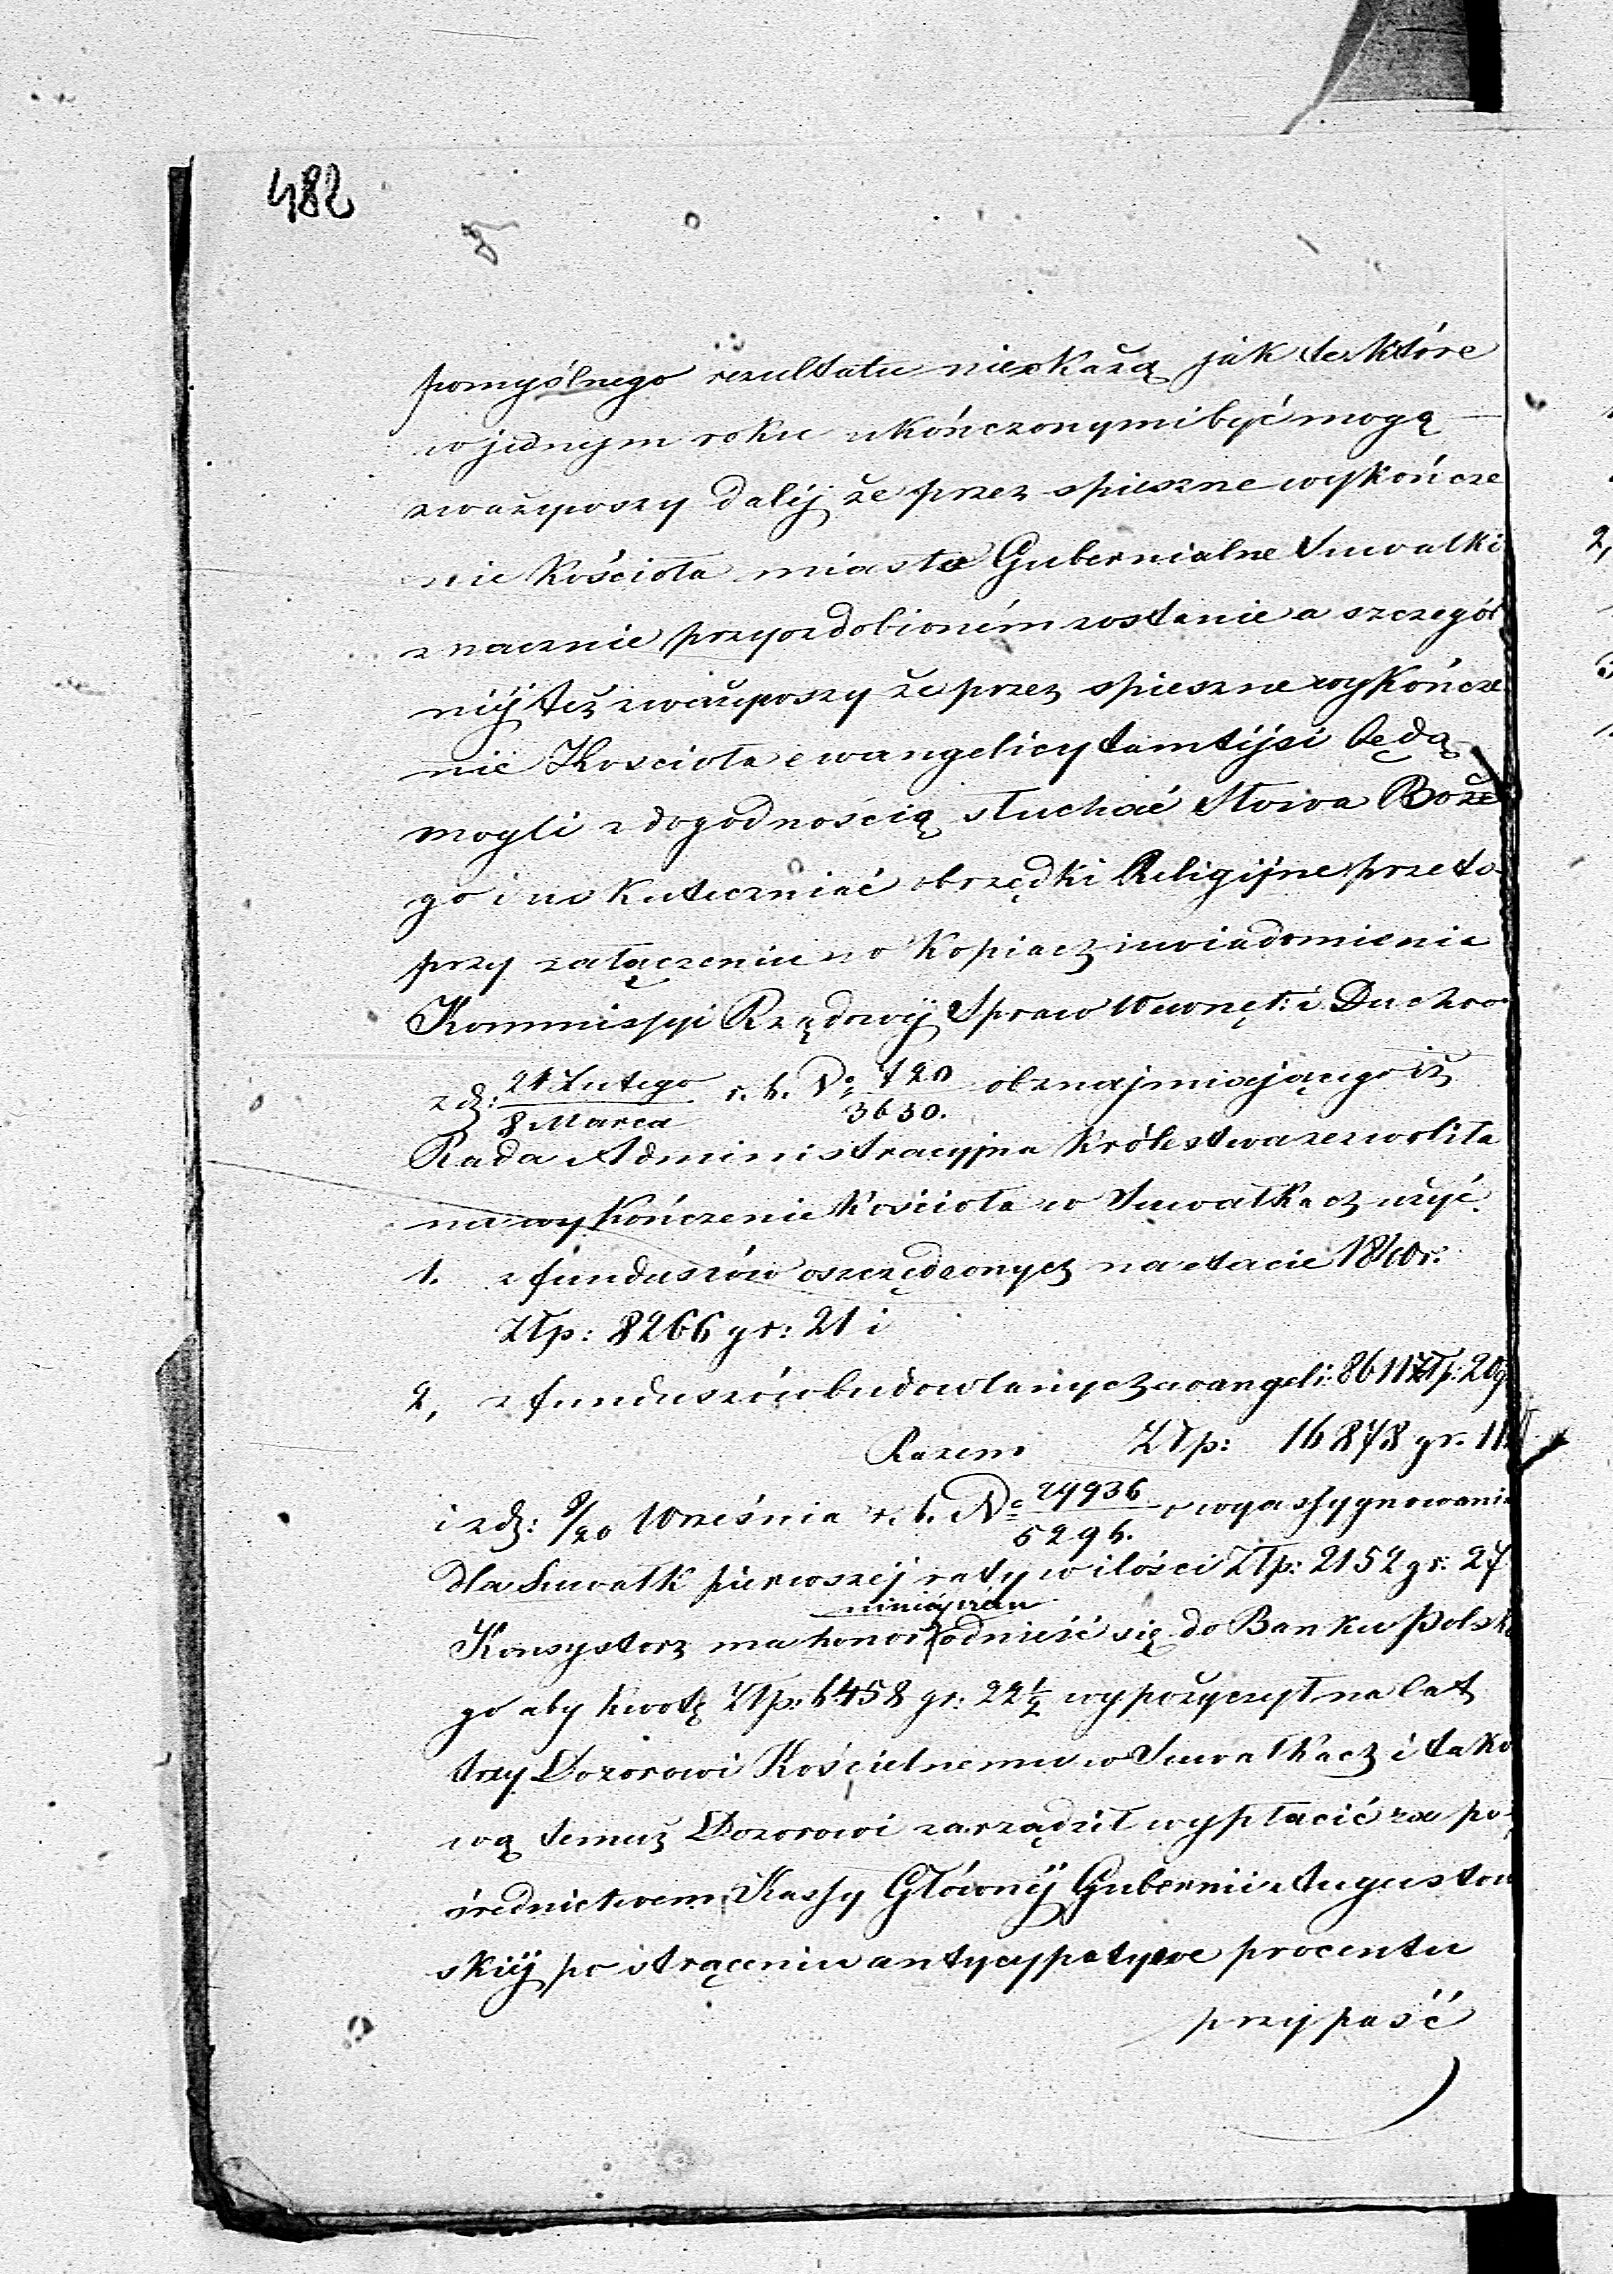 482
pomyślnego rezultatu nieokażą jak te które
w jednym roku ukończonymi być mogą
zważywszy daléj że przez spieszne wykończe
nie Kościoła miasto Gubernialne Suwałki
znacznie przyozdobioném zostanie a szczegól
niéj też zważywszy że przez spieszne wykończe
nie Kościoła ewangelicy tamtéjsi będą
mogli z dogodnością słuchać Słowa Boże
go i uskuteczniać obrzędki Religijne przeto
przy załączeniu w Kopiach uwiadomienia
Kommissyi Rządowéj Spraw Wewnęt: i Ducho
z d: 24 Lutego / 8 Marca r. b. No 720 / 3650. obznajmiającego iż
Rada Administracyjna Królestwa zezwoliła
na wykończenie Kościoła w Suwałkach użyć.
1. z funduszów oszczędzonych na etacie 1840 r.
Złp: 8266 gr: 21 i
2, z funduszów budowlanych ewangeli: 8611 Złp: 20 g
Razem Złp: 16878 gr. 11
i z d: 8/20 Września r. b. No 24936 / 5296. o wyassygnowaniu
dla Suwałk pierwszéj raty w ilości Złp: 2152 gr: 27
Konsystorz ma honor odnieść się do Banku Polskie
go aby kwotę Złp: 6458 gr: 22½ wypożyczył na lat
trzy Dozorowi Kościelnemu w Suwałkach i tako
wą temuż Dozorowi zarządził wypłacić za po
średnictwem Kassy Głównéj Gubernii Augustow
skiéj po strąceniu antycypative procentu
przypaść